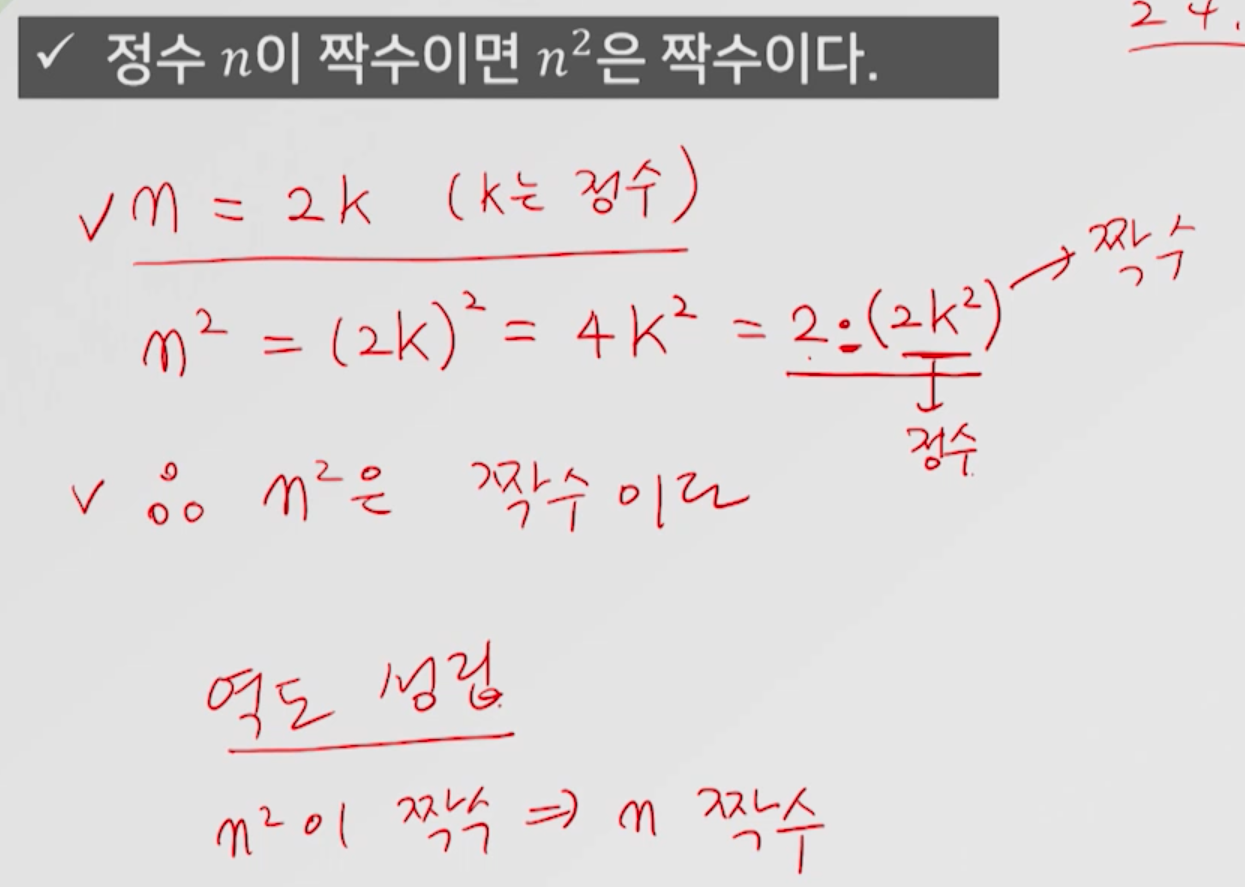 2 4.
✓ 정수 n이 짝수이면 n²은 짝수이다.
✓ n = 2k (k는 정수)
n² = (2k)² = 4k² = 2·(2k²) → 짝수
↓
정수
✓ ∴ n²은 짝수이다
역도 성립
n²이 짝수 ⇒ n 짝수